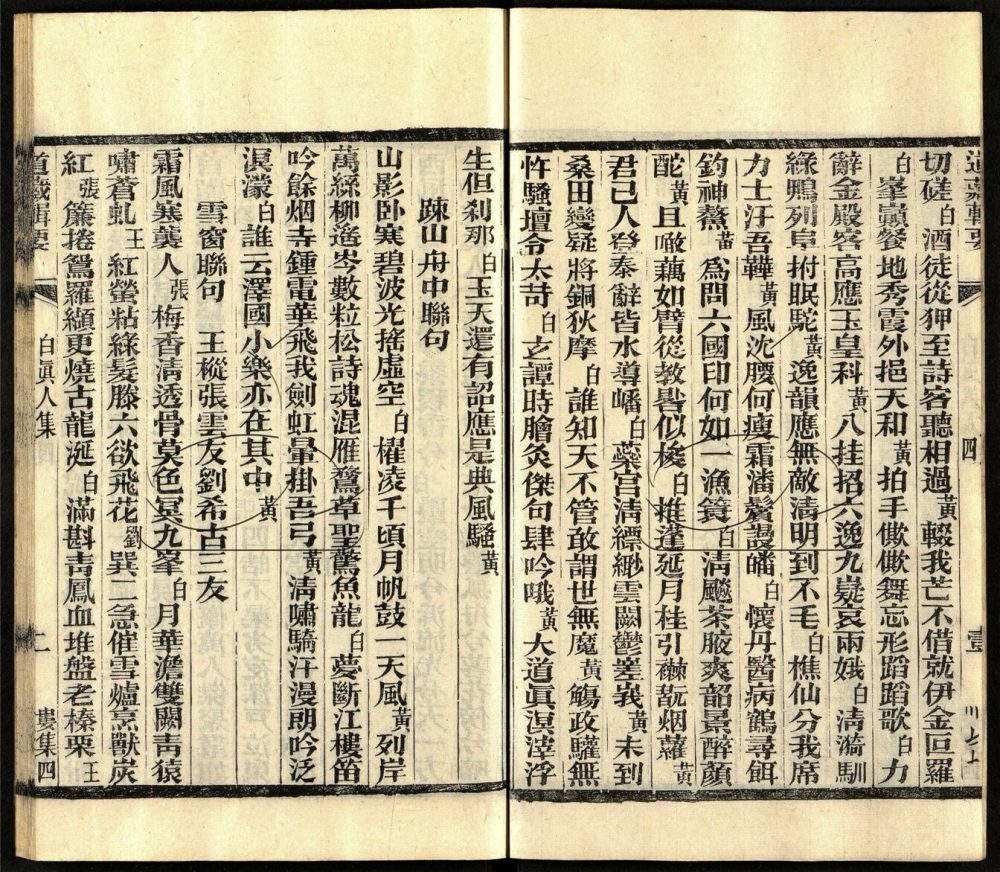 道藏輯要 四 
切磋白酒徒從狎至詩客聽相過黃輟我芒不借就伊金叵羅
白峯巔餐地秀霞外挹天和黃拍手僛僛舞忘形蹈蹈歌白力
辭金殿客高應玉皇科黃八挂招六逸九疑哀兩娥白清漪馴
綠鴨列阜拊眠駝黃逸韻應無敵清明到不毛白樵仙分我席
力士汙吾鞾黃風沈腰何瘦霜潘鬢謾皤白懷丹醫病鶴尋餌
釣神鰲黃爲問六國印何如一漁簑白清飈茶腋爽韶景醉顏
酡黃且噉藕如臂從教晷似梭白推蓬延月桂引襋翫烟蘿黃
君已人登泰辭皆水導嶓白蘂宮清縹緲雲闕鬱差峩黃未到
桑田變疑將銅狄摩白誰知天不管敢謂世無魔黃觴政驩無
忤騷壇令太苛白玄譚時膾炙傑句肆吟哦黃大道眞溟涬浮
生但刹那白玉天還有詔應是典風騷黃
踈山舟中聯句
山影卧寒碧波光搖虛空白櫂凌千頃月帆鼓一天風黃列岸
萬絲柳遙岑數粒松詩魂混雁鶩草聖驚魚龍白夢斷江樓笛
吟餘烟寺鍾電華飛我劍虹暈掛吾弓黃清嘯騎汗漫朗吟泛
溟濛白誰云澤國小樂亦在其中黃
雪窗聯句 王樅張雲友劉希古三友
霜風寒襲人張梅香清透骨莫色冥九峯白月華澹雙闕靑猿
嘯蒼虬王紅螢粘綠髮滕六欲飛花劉巽二急催雪爐烹獸炭
紅張簾捲鴛羅纈更燒古龍涎白滿斟靑鳳血堆盤老榛栗王
道藏輯要 白眞人集 二 婁集四